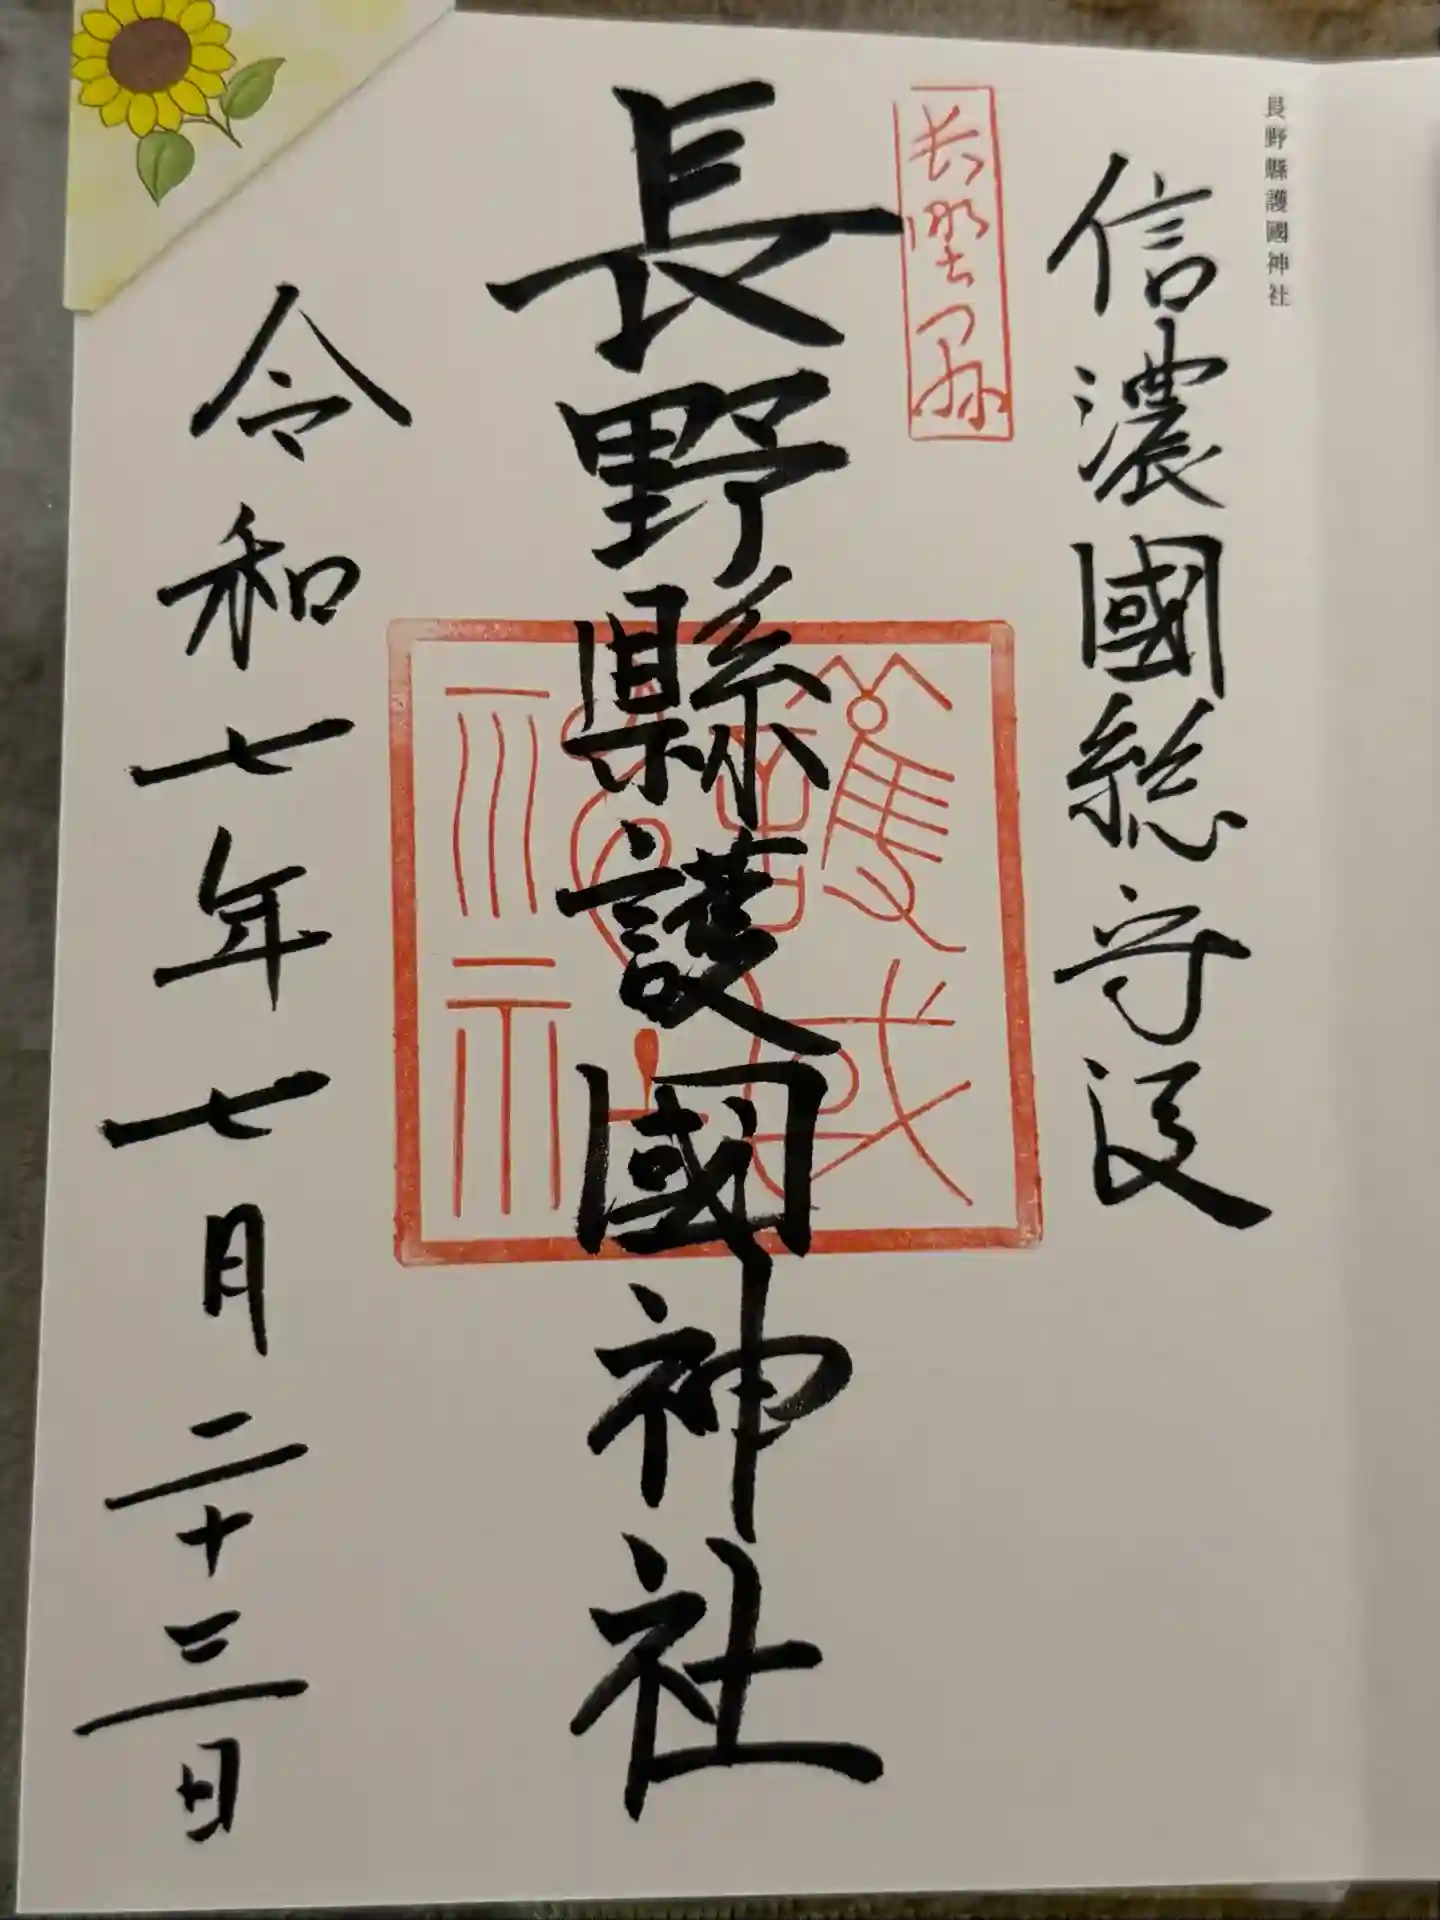 長野縣護國神社
信濃國総守護
長野縣
長野縣護國神社
令和七年七月二十三日